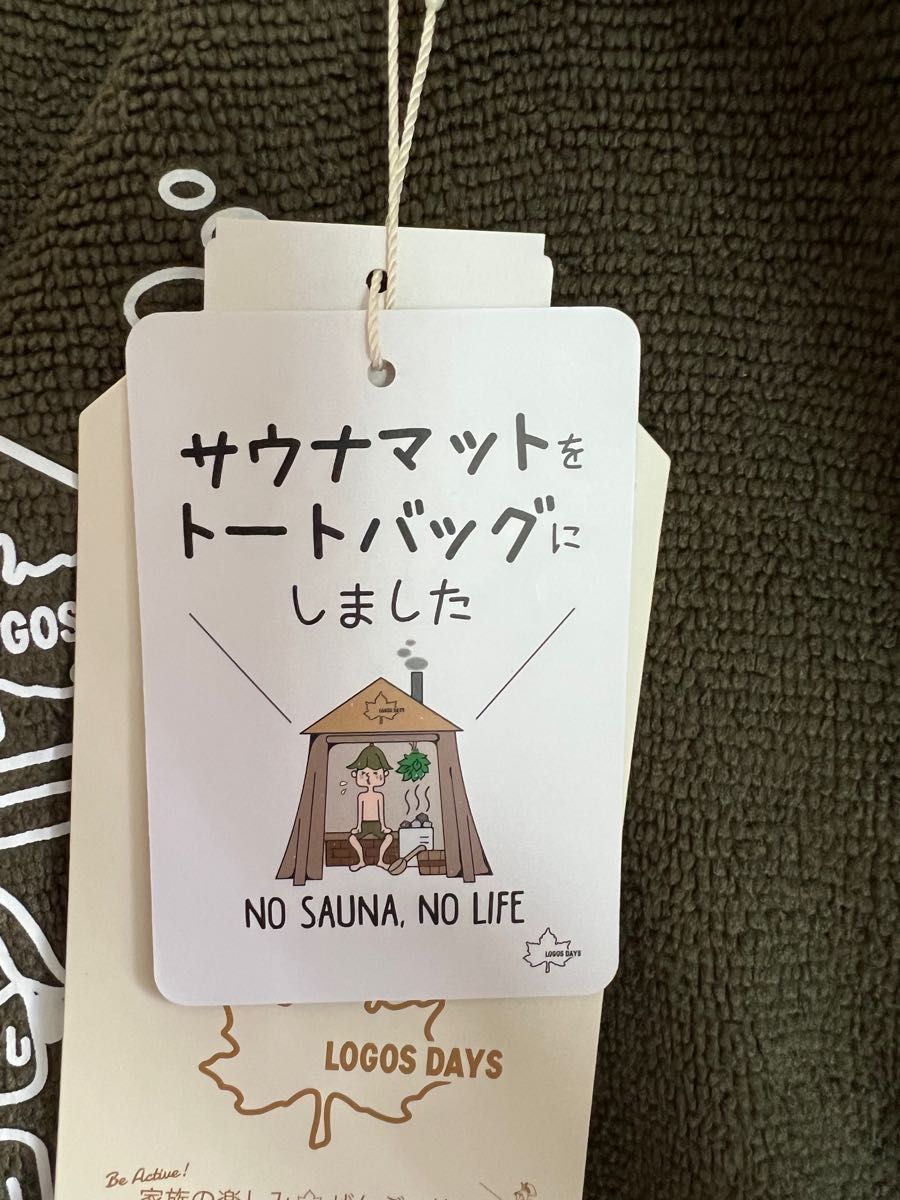 サウナマットを
トートバッグに
しました
LOGOS DAYS
NO SAUNA, NO LIFE
LOGOS DAYS
GOS
LOGOS DAYS
Be Active!
家族の楽しみ